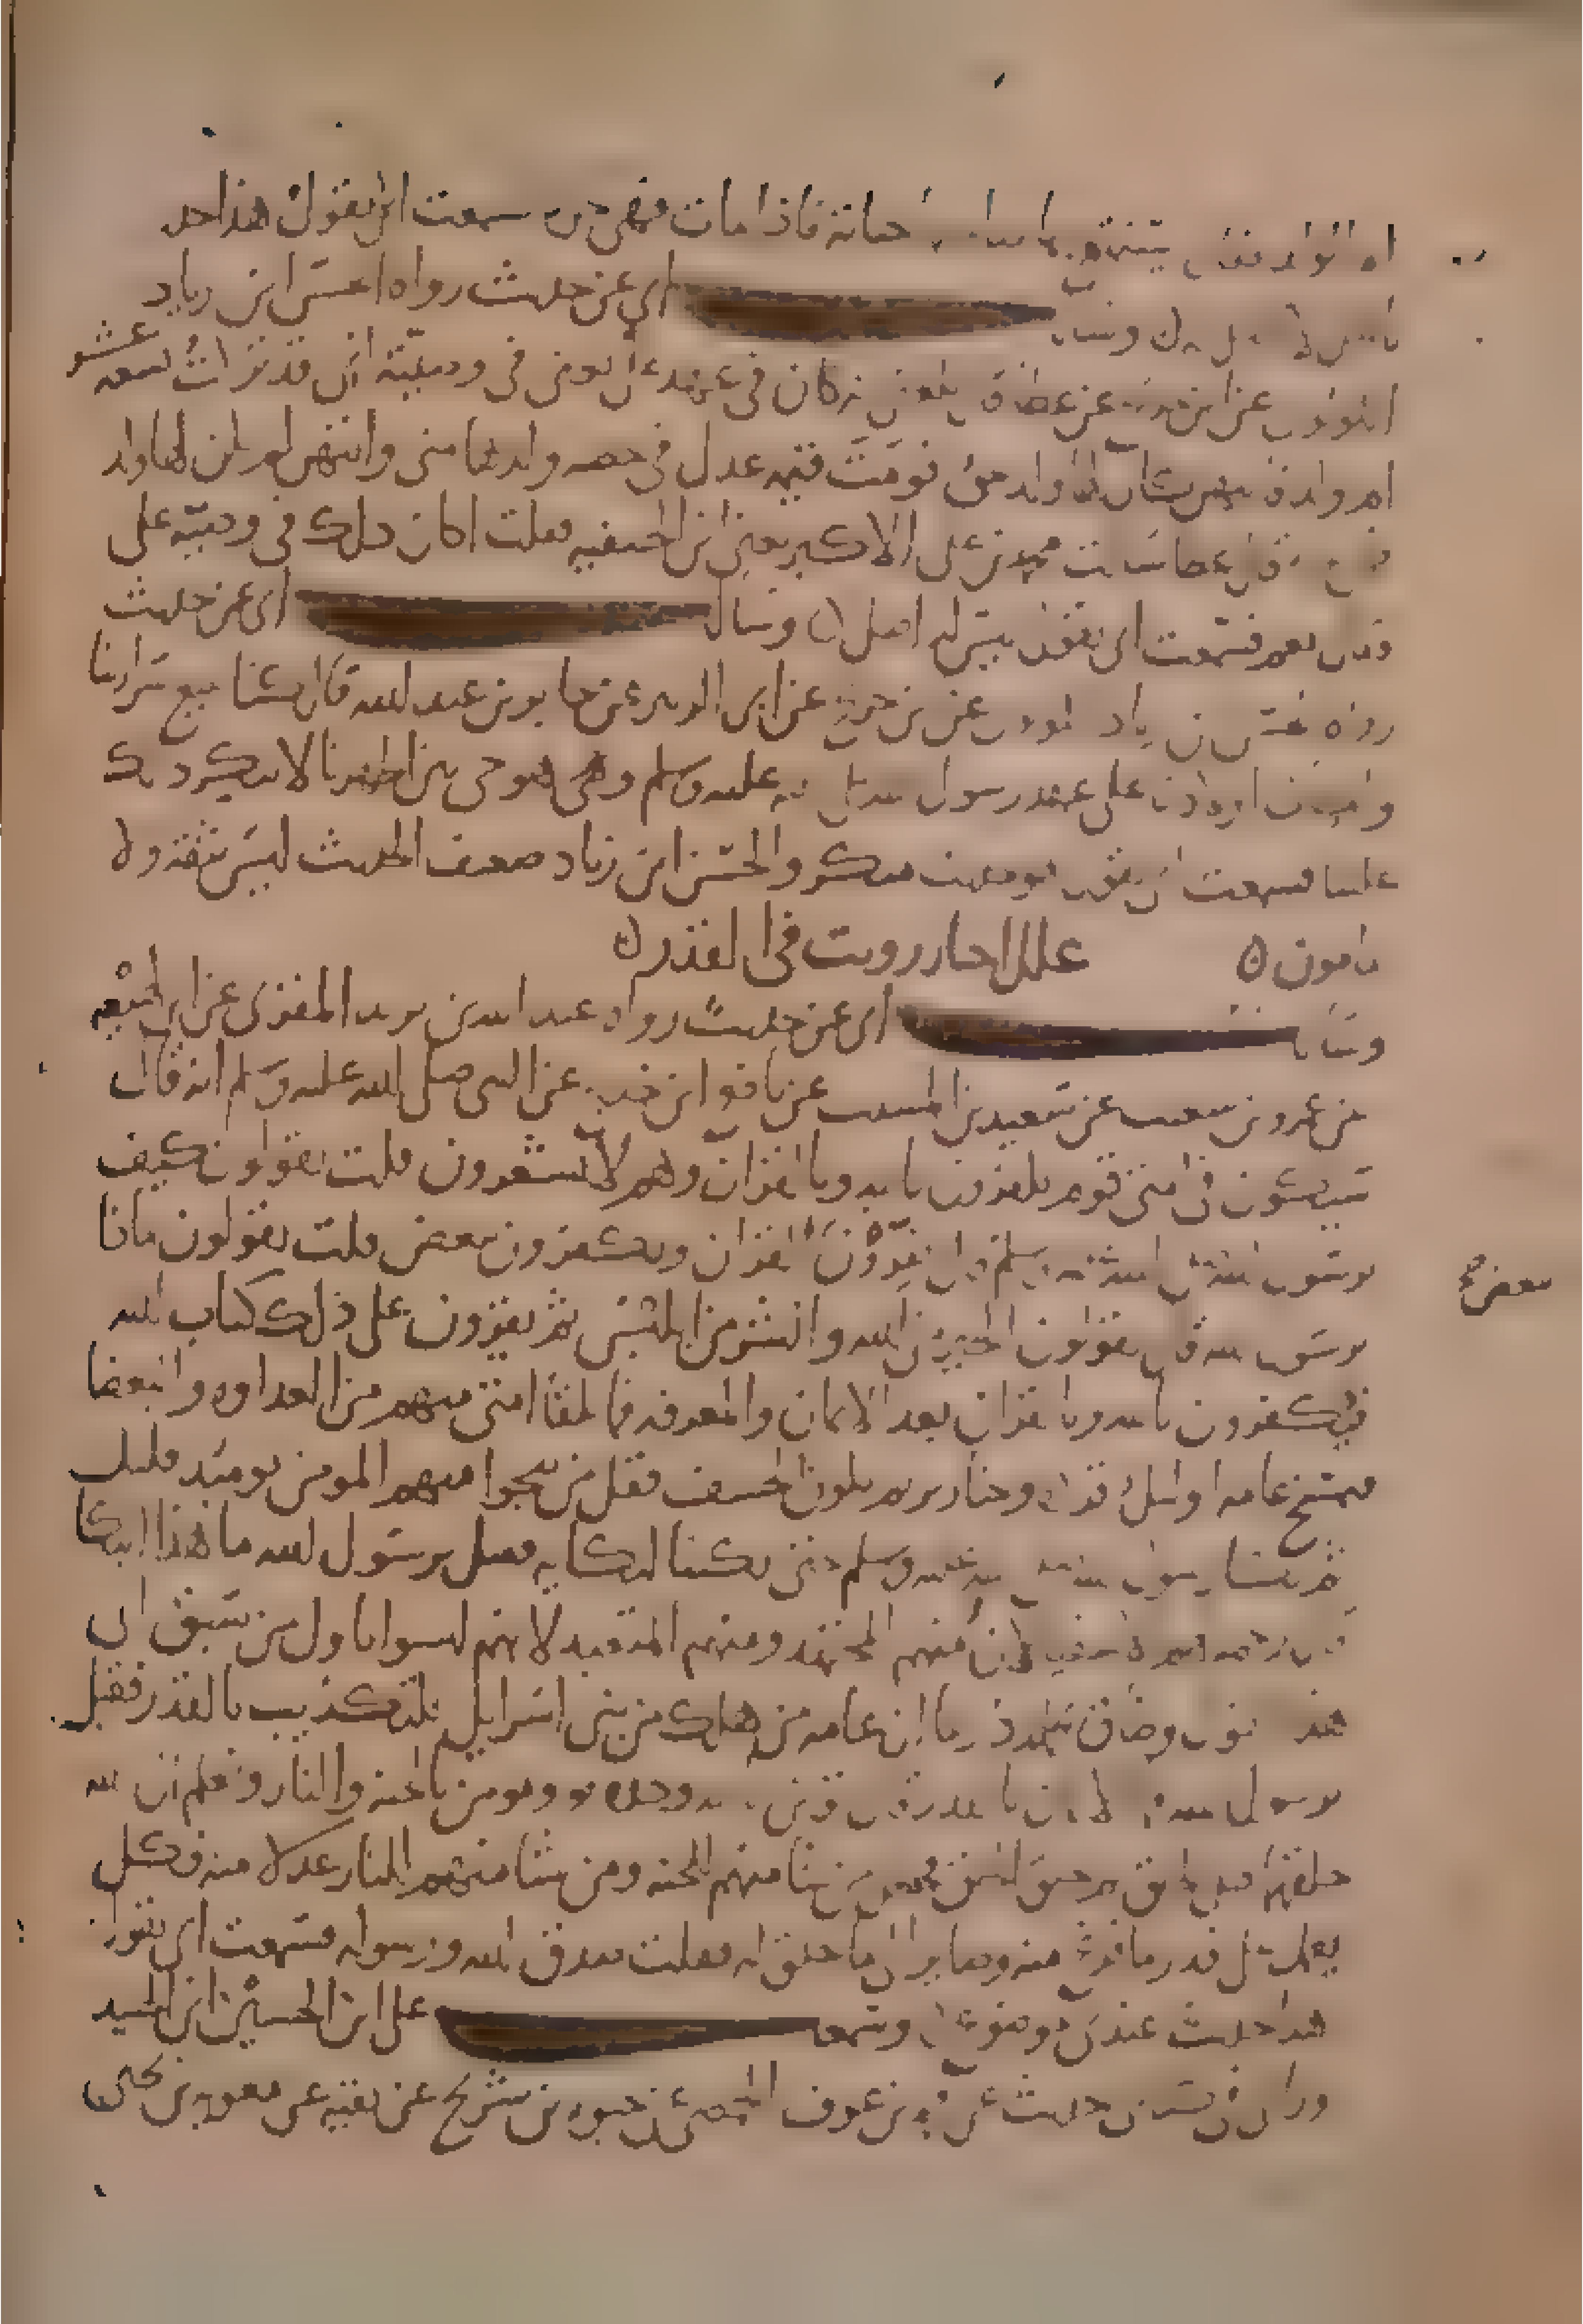 ام الولد فقال يستمتع بها ما دام حياته فاذا مات فهي حره سمعت ابي يقول هذا حديث
وسالت ابي عن حديث رواه الحسن ابن زياد
اللولوي عن ابن جريج عن عطاء قال بلغني ان كان في عهد علي الذي يوصي في وصيته اني قد تركت تسعه عشر
ام ولد فايتهن كان لها ولد مني قومت قيمه عدل في حصه ولدها مني وايتهن لم يكن لها ولد
قال عطا سالت محمد بن علي الاكبر يعني ابن الحنفيه فقلت اكان ذلك في وصيه علي
قال نعم فسمعت ابي يقول ليس له اصل وسالت ابي عن حديث
رواه الحسن بن زياد اللولوي عن بن جريج عن ابي الزبير عن جابر بن عبد الله قال كنا نبيع سرارينا
وامهات اولادنا على عهد رسول الله صلى الله عليه وسلم وهو حي بين اظهرنا لا ينكر ذلك
علينا فسمعت ابي يقول هو حديث منكر والحسن ابن زياد ضعيف الحديث ليس بثقه ولا
مامون علل اخبار رويت في القدر
وسالت ابي عن حديث رواه عبد الله بن يزيد المقرى عن ابن لهيعه
عن عمرو بن شعيب عن سعيد بن المسيب عن رافع ابن خديج عن النبي صلى الله عليه وسلم انه قال
سيكون في امتي قوم يكفرون بالله وبالقران وهم لا يشعرون قلت يقولون كيف
يرسول الله صلى الله عليه وسلم قال يقرون القران ويكفرون ببعض قلت يقولون ماذا
يرسول الله قال يقولون الخير من الله والشر من ابليس ثم يقرون على ذلك كتاب الله
فيكفرون بالله وبالقران بعد الايمان والمعرفه فما تلقا امتي منهم من العداوه والبغضا
فيمسخ عامه اوليك قرده وخنازير ثم يكون الخسف فقل من ينجوا منهم المومن يوميذ قليل
ثم بكا رسول الله صلى الله عليه وسلم حتى بكينا لبكايه فقيل يرسول الله ما هذا البكا
قال رحمه لهم الاشقيا لان منهم المجتهد ومنهم المتعبد لانهم ليسوا باول من سبق الى
هذا القول وضاق بحمله ذرعا ان عامه من هلك من بني اسرايل بالتكذيب بالقدر فقيل
يرسول الله ما الايمان بالقدر قال تومن بالله وحده وتومن بالجنه والنار وتعلم ان الله
خلقهم قبل الخلق ثم خلق الخلق فجعل من شا منهم للجنه ومن شا منهم للنار عدلا منه فكل
يعمل على قدر ما فرغ منه وصاير الى ما خلق له فقلت صدق الله ورسوله فسمعت ابي يقول
هذا حديث عندي موضوع وسمعت علي ابن الحسين ابن الجنيد
وراى في حديث عن محمد بن عوف الحمصي عن حيوه بن شريح عن بقيه عن معويه بن يحيى
ببعض صح